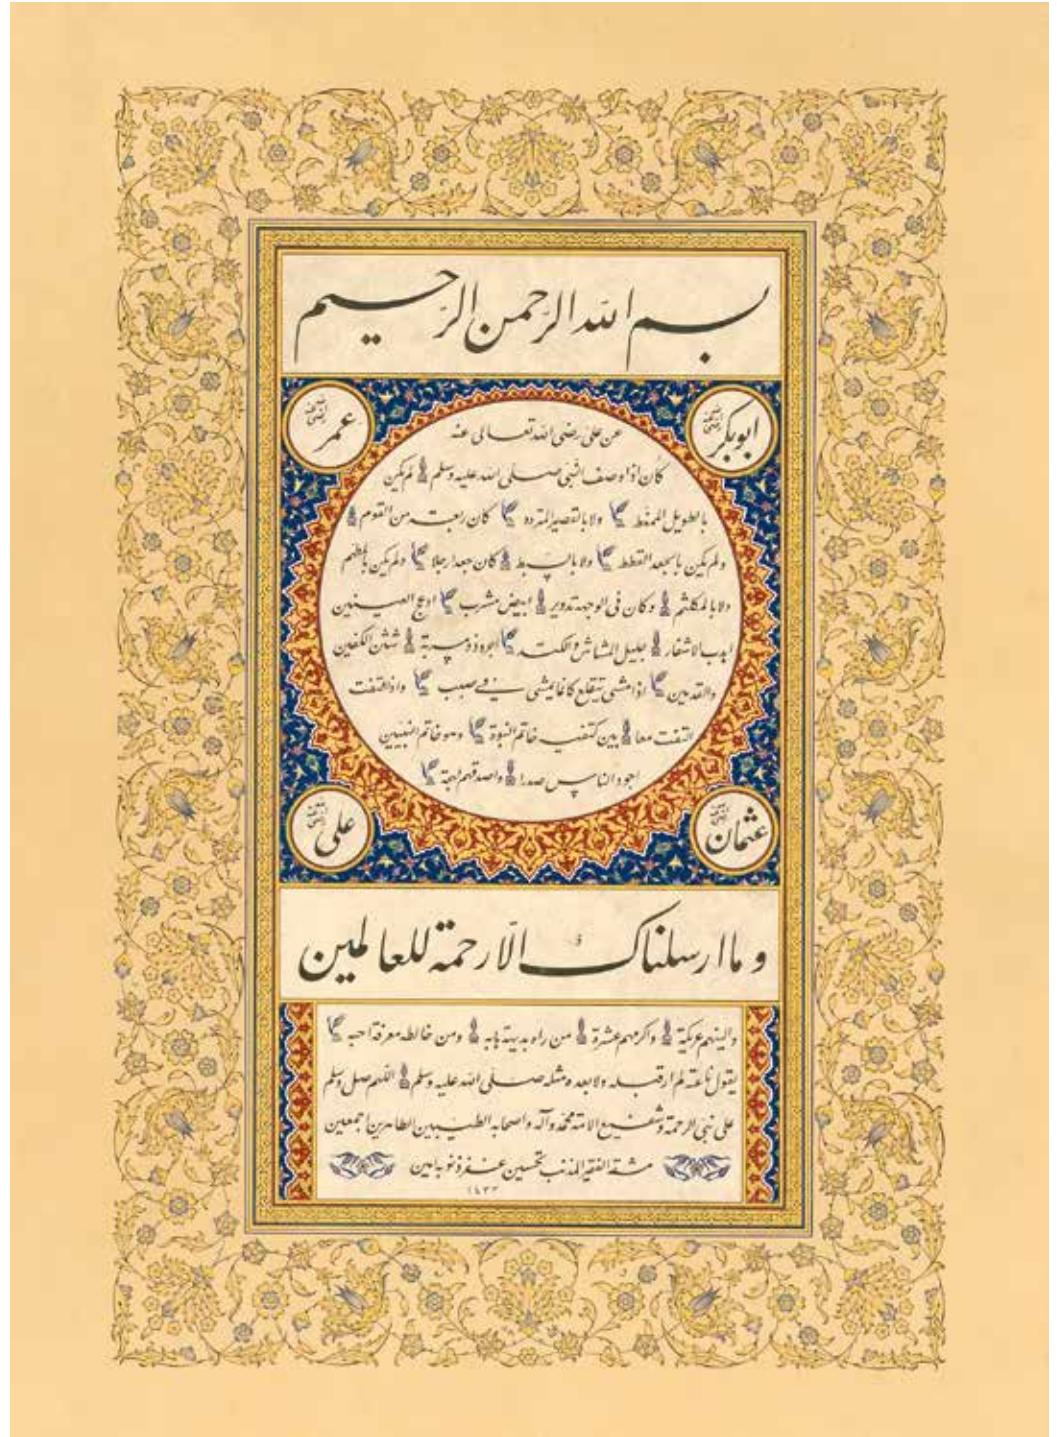 بسم الله الرّحمن الرّحيم
ابوبكر رضی الله عنه
عمر رضی الله عنه
عن علی رضی الله تعالی عنه
كان اذا وصف النبی صلی الله عليه وسلم لم يكن
بالطويل الممغط ولا بالقصير المتردد كان ربعة من القوم
ولم يكن بالجعد القطط ولا بالسبط كان جعدا رجلا ولم يكن بالمطهم
ولا بالمكلثم وكان فی الوجه تدوير ابيض مشرب ادعج العينين
اهدب الاشفار جليل المشاش والكتد اجرد ذو مسربة شثن الكفين
والقدمين اذا مشی يتقلع كانما يمشی فی صبب واذا التفت
التفت معا بين كتفيه خاتم النبوة وهو خاتم النبيين
اجود الناس صدرا واصدقهم لهجة
عثمان رضی الله عنه
علی رضی الله عنه
وما ارسلناك الّا رحمة للعالمين
والينهم عريكة واكرمهم عشرة من راه بديهة هابه ومن خالطه معرفة احبه
يقول ناعته لم ار قبله ولا بعده مثله صلی الله عليه وسلم اللهم صل وسلم
علی نبی الرحمة وشفيع الامة محمد وآله واصحابه الطيبين الطاهرين اجمعين
مشقه الفقير المذنب تحسين غفر ذنوبه امين
١٤٣٣